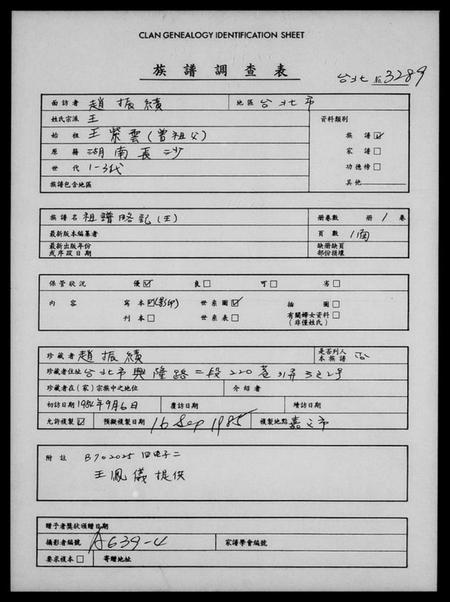 CLAN GENEALOGY IDENTIFICATION SHEET
族譜調查表
台北 3289
面訪者 趙振績 地區 台北市
姓氏宗派 王 資料類別
始祖 王紫雲(曾祖父) 族譜☑
原籍 湖南長沙 家譜□
世代 1-3代 功德榜□
族譜包含地區 其他
族譜名 祖譜略記(王) 册卷數 册 1 卷
最新版本編纂者 頁數 1面
最新出版年份 缺册缺頁
或序跋日期 部份損壞
保管狀況 優☑ 良□ 可□ 劣□
內容 寫本☑(影印) 世系圖☑ 插圖□
刊本□ 世系表□ 有關婦女資料□
(非僅姓氏)
珍藏者 趙振績 是否列入本族譜 否
珍藏者住址 台北市興隆路二段220巷
珍藏者在(家)宗族中之地位 介紹者
初訪日期 1984年9月6日 覆訪日期 續訪日期
允許複製☑ 預擬複製日期 16 Sep 1985 複製地點
附註 B702025
王鳳儀提供
贈予者獎狀頒贈日期
攝影者編號 A639-4 家譜學會編號
要求複本□ 寄贈地址